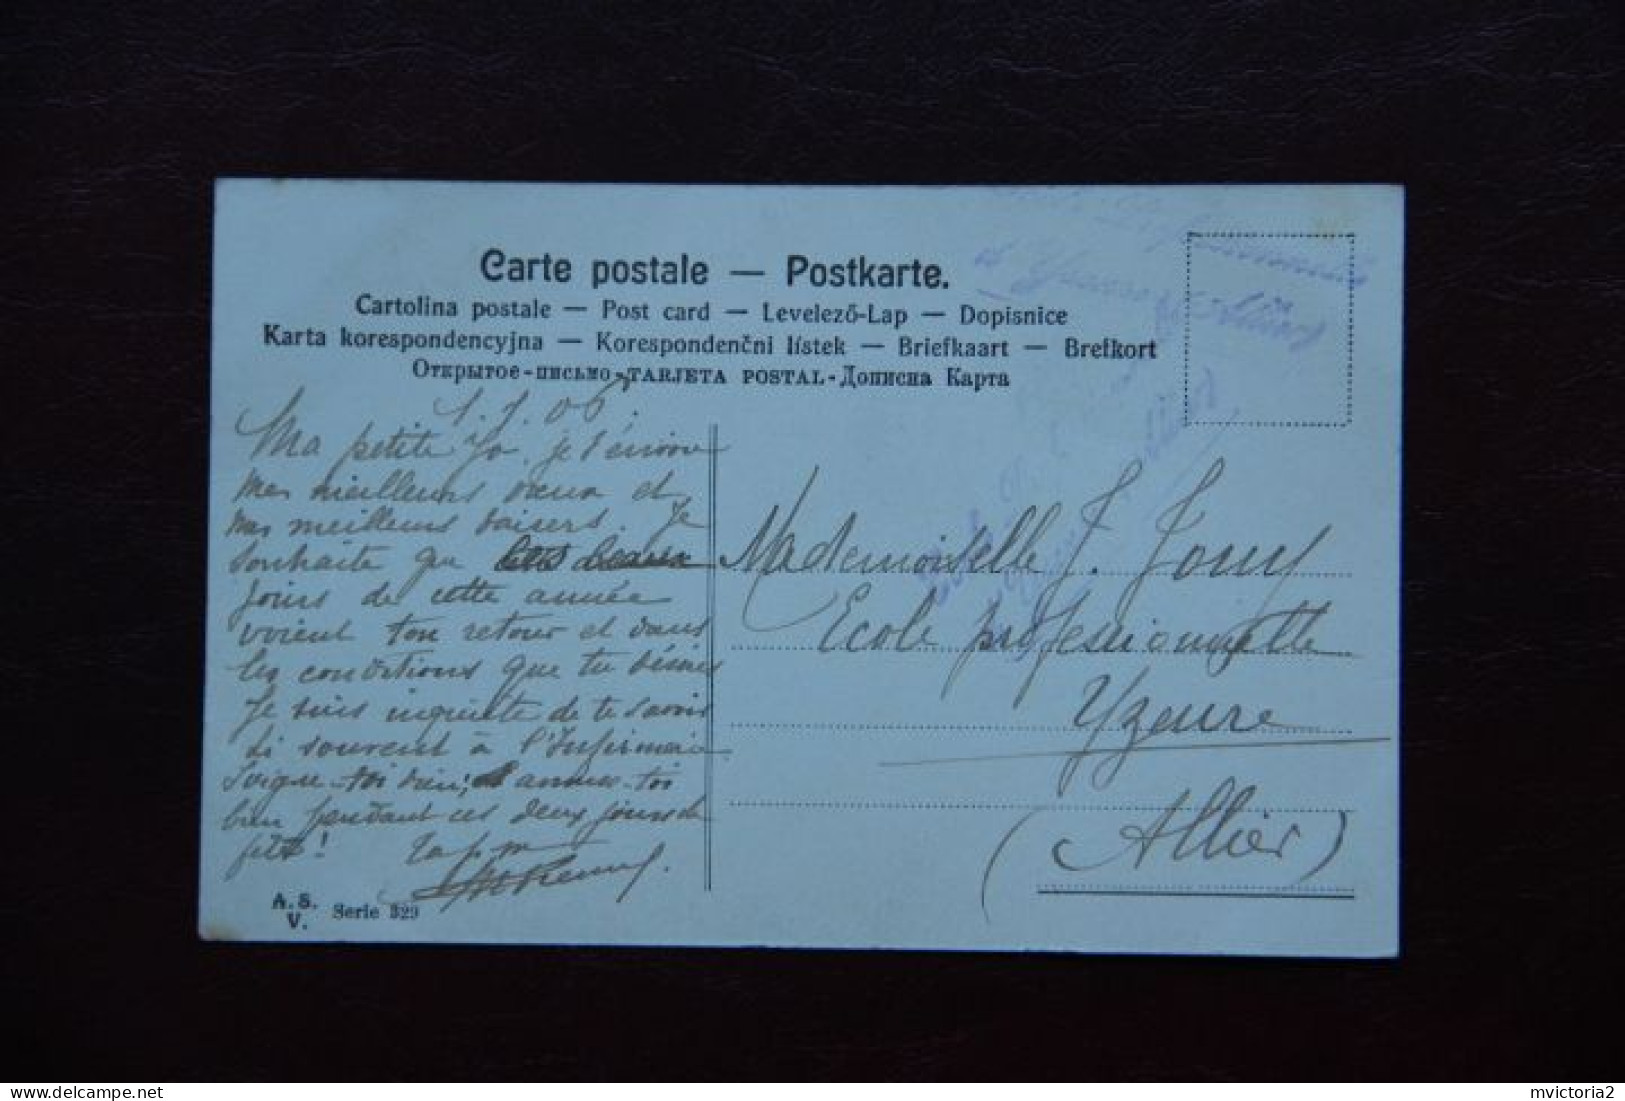 Carte postale — Postkarte.
Cartolina postale — Post card — Levelező-Lap — Dopisnice
Karta korespondencyjna — Korespondenčni lístek — Briefkaart — Brefkort
Открытое-письмо-TARJETA POSTAL-Дописна Карта
1.1.06
Ma petite Jo, je t'envoie
mes meilleurs vœux et
mes meilleurs baisers. Je
souhaite que les beaux
jours de cette année
voient ton retour et dans
les conditions que tu désires
Je suis inquiète de te savoir
si souvent à l'Infirmerie
Soigne-toi bien; amuse-toi
bien pendant ces deux jours de
fête!
Mademoiselle J. Jouy
Ecole professionnelle
Yzeure
(Allier)
A. S.
V. Serie 329
à Yzeure (Allier)
delcampe.net
mvictoria2